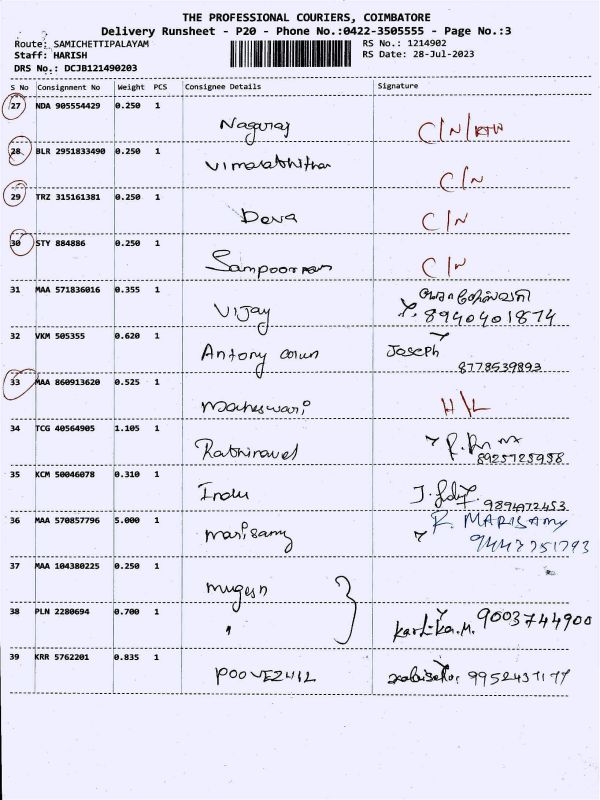 THE PROFESSIONAL COURIERS, COIMBATORE
Delivery Runsheet - P20 - Phone No.:0422-3505555 - Page No.:3
Route: SAMICHETTIPALAYAM RS No.: 1214902
Staff: HARISH RS Date: 28-Jul-2023
DRS No.: DCJB121490203
S No Consignment No Weight PCS Consignee Details Signature
27 NDA 905554429 0.250 1
Nagaraj C/N/
28 BLR 2951833490 0.250 1
C/N
29 TRZ 315161381 0.250 1
Deva C/N
30 STY 884886 0.250 1
Sampoornam C/N
31 MAA 571836016 0.355 1
Vijay 8940401874
32 VKM 505355 0.620 1
Antony arun Joseph
8778539893
33 MAA 860913620 0.525 1
Maheswari H/L
34 TCG 40564905 1.105 1
Rathinavel 8925725958
35 KCM 50046078 0.310 1
Indu J. 9894972453
36 MAA 570857796 5.000 1 R. MARISAMY
marisamy 9447751793
37 MAA 104380225 0.250 1
mugesh
38 PLN 2280694 0.700 1
" Karthika.M. 9003744900
39 KRR 5762201 0.835 1
POOVEZHIL 9952437177